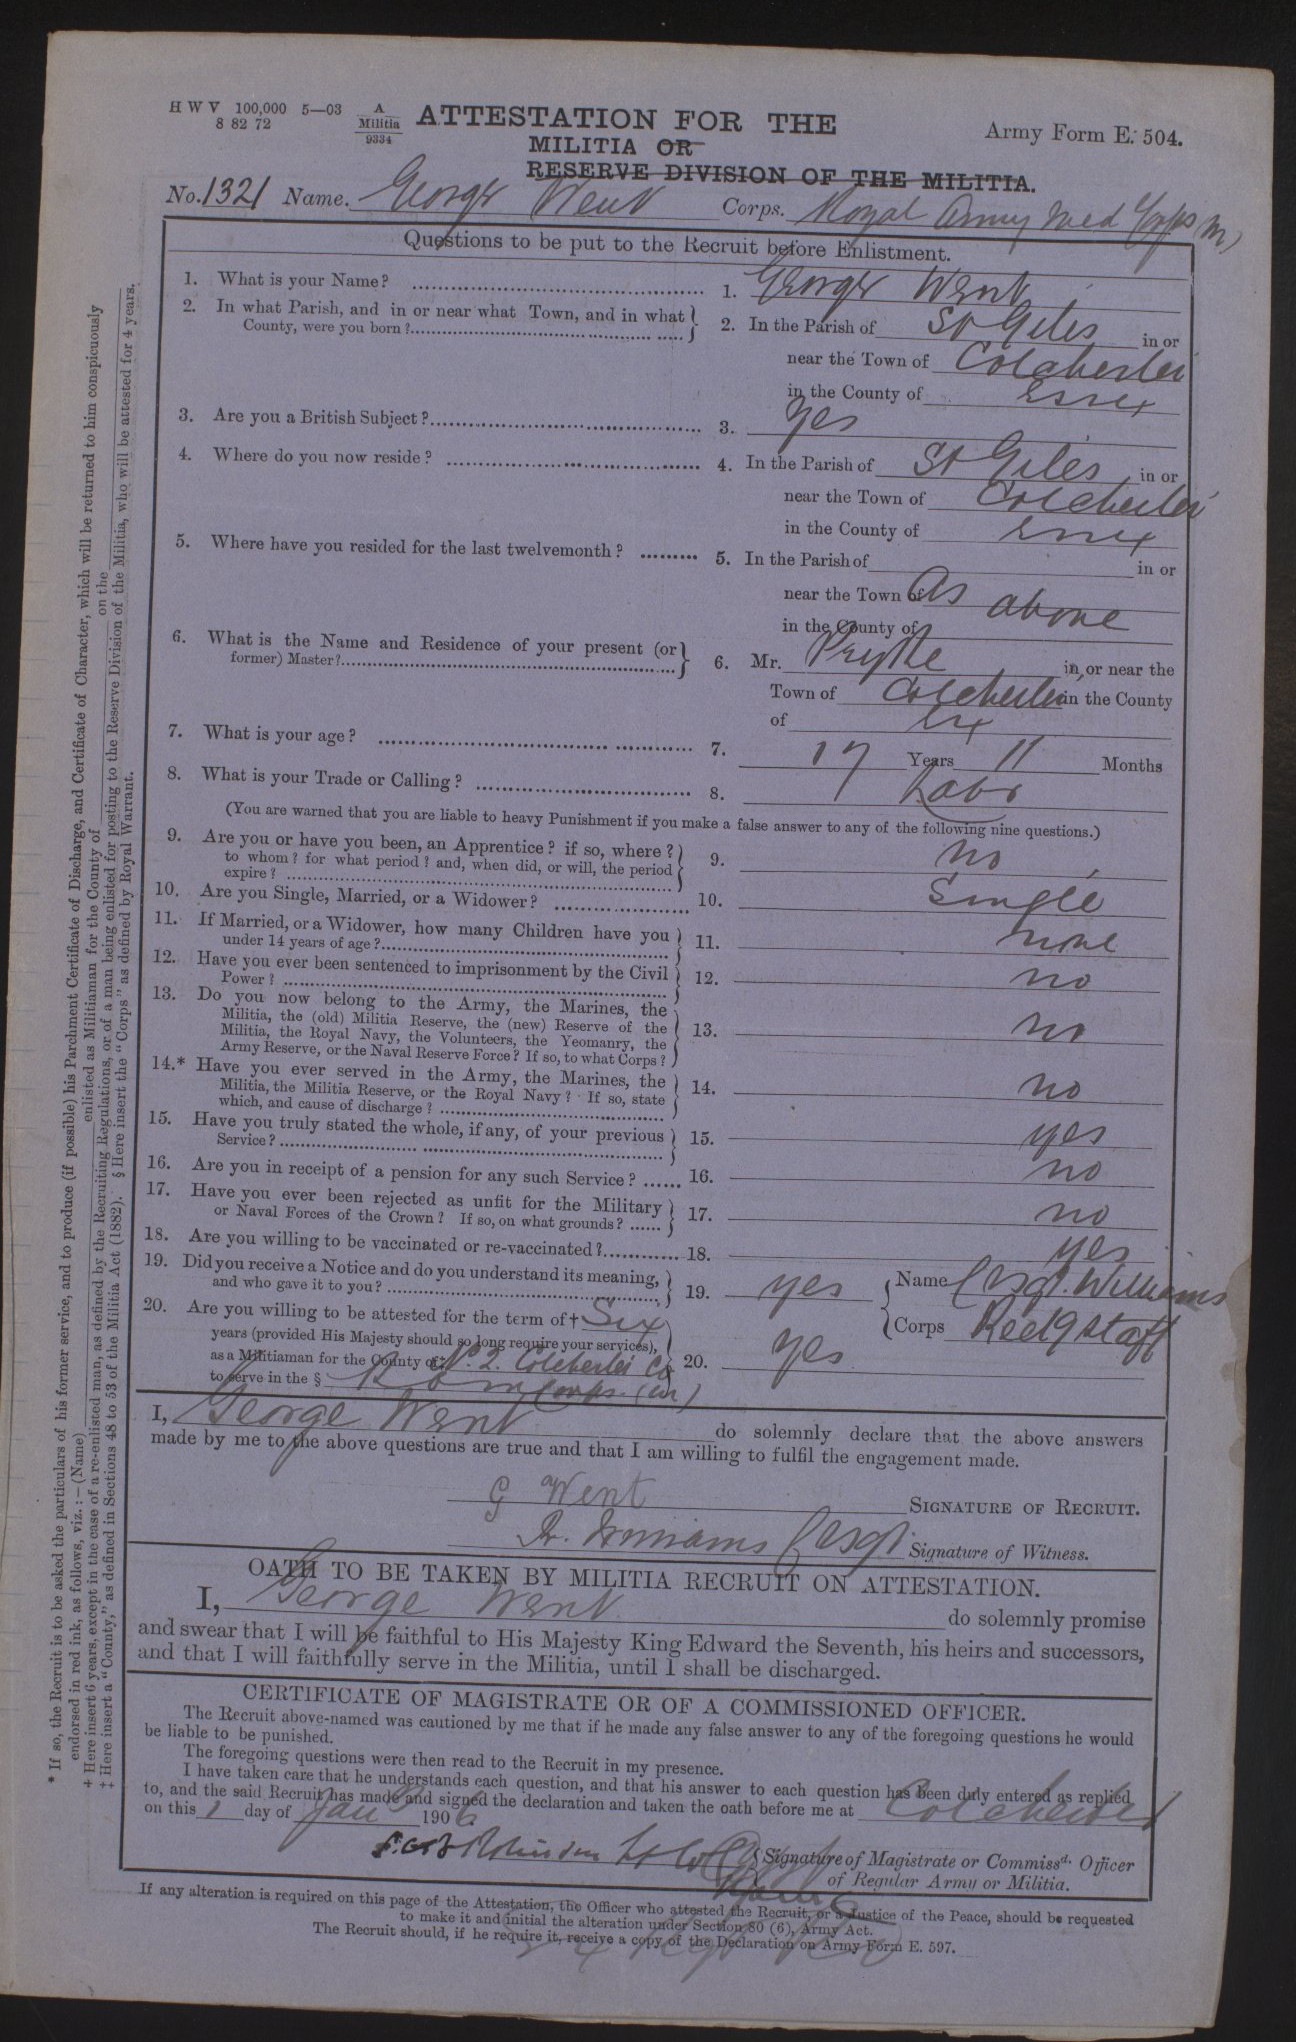 H W V 100,000 5—03 A Militia 9334
8 82 72
ATTESTATION FOR THE
Army Form E. 504.
MILITIA OR
RESERVE DIVISION OF THE MILITIA.
No. 1321 Name. George Went Corps. Royal Army Med Corps (M)
Questions to be put to the Recruit before Enlistment.
1. What is your Name? 1. George Went
2. In what Parish, and in or near what Town, and in what County, were you born? 2. In the Parish of St Giles in or
near the Town of Colchester
in the County of Essex
3. Are you a British Subject? 3. Yes
4. Where do you now reside? 4. In the Parish of St Giles in or
near the Town of Colchester
in the County of Essex
5. Where have you resided for the last twelvemonth? 5. In the Parish of in or
near the Town of As above
in the County of
6. What is the Name and Residence of your present (or former) Master? 6. Mr. in or near the
Town of Colchester in the County
of Sx
7. What is your age? 7. 17 Years 11 Months
8. What is your Trade or Calling? 8. Labr
(You are warned that you are liable to heavy Punishment if you make a false answer to any of the following nine questions.)
9. Are you or have you been, an Apprentice? if so, where?
to whom? for what period? and, when did, or will, the period
expire? 9. no
10. Are you Single, Married, or a Widower? 10. Single
11. If Married, or a Widower, how many Children have you
under 14 years of age? 11. none
12. Have you ever been sentenced to imprisonment by the Civil
Power? 12. no
13. Do you now belong to the Army, the Marines, the
Militia, the (old) Militia Reserve, the (new) Reserve of the
Militia, the Royal Navy, the Volunteers, the Yeomanry, the
Army Reserve, or the Naval Reserve Force? If so, to what Corps? 13. no
14.* Have you ever served in the Army, the Marines, the
Militia, the Militia Reserve, or the Royal Navy? If so, state
which, and cause of discharge? 14. no
15. Have you truly stated the whole, if any, of your previous
Service? 15. yes
16. Are you in receipt of a pension for any such Service? 16. no
17. Have you ever been rejected as unfit for the Military
or Naval Forces of the Crown? If so, on what grounds? 17. no
18. Are you willing to be vaccinated or re-vaccinated? 18. yes
19. Did you receive a Notice and do you understand its meaning,
and who gave it to you? 19. yes Name C Sgt. Williams
Corps Recg Staff
20. Are you willing to be attested for the term of † Six
years (provided His Majesty should so long require your services),
as a Militiaman for the County of ‡ No. 2. Colchester Co
to serve in the § R A M Corps. (M) 20. Yes
I, George Went do solemnly declare that the above answers
made by me to the above questions are true and that I am willing to fulfil the engagement made.
G Went SIGNATURE OF RECRUIT.
R. Williams C Sgt. Signature of Witness.
OATH TO BE TAKEN BY MILITIA RECRUIT ON ATTESTATION.
I, George Went do solemnly promise
and swear that I will be faithful to His Majesty King Edward the Seventh, his heirs and successors,
and that I will faithfully serve in the Militia, until I shall be discharged.
CERTIFICATE OF MAGISTRATE OR OF A COMMISSIONED OFFICER.
The Recruit above-named was cautioned by me that if he made any false answer to any of the foregoing questions he would
be liable to be punished.
The foregoing questions were then read to the Recruit in my presence.
I have taken care that he understands each question, and that his answer to each question has been duly entered as replied
to, and the said Recruit has made and signed the declaration and taken the oath before me at Colchester
on this 1 day of Jany 1906
Robinson Lt Col
Signature of Magistrate or Commissd. Officer
of Regular Army or Militia.
If any alteration is required on this page of the Attestation, the Officer who attested the Recruit, or a Justice of the Peace, should be requested
to make it and initial the alteration under Section 80 (6), Army Act.
The Recruit should, if he require it, receive a copy of the Declaration on Army Form E. 597.
* If so, the Recruit is to be asked the particulars of his former service, and to produce (if possible) his Parchment Certificate of Discharge, and Certificate of Character, which will be returned to him conspicuously
endorsed in red ink, as follows, viz.:—(Name) enlisted as Militiaman for the County of on the
† Here insert 6 years, except in the case of a re-enlisted man, as defined by the Recruiting Regulations, or of a man being enlisted for posting to the Reserve Division of the Militia, who will be attested for 4 years.
‡ Here insert a "County," as defined in Sections 48 to 53 of the Militia Act (1882). § Here insert the "Corps" as defined by Royal Warrant.